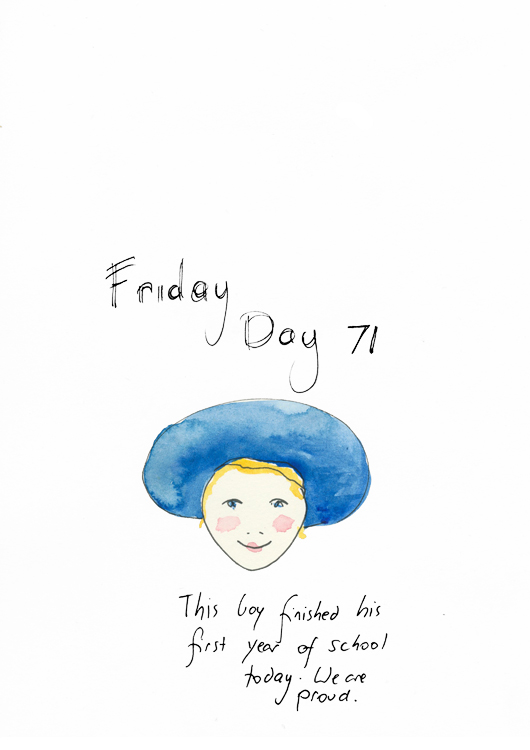 Friday
Day 71
This boy finished his
first year of school
today. We are
proud.